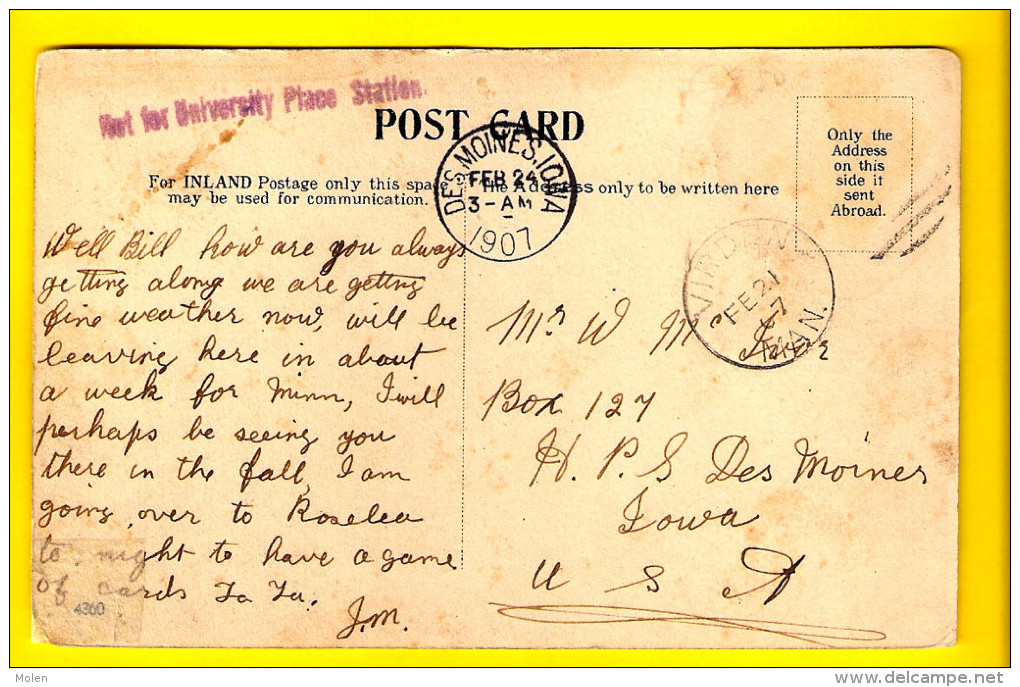 Not for University Place Station.
POST CARD
For INLAND Postage only this space
may be used for communication.
The Address only to be written here
Only the
Address
on this
side it
sent
Abroad.
DES MOINES, IOWA
FEB 24
3-AM
1907
VIRDEN
FE 21
7
MAN.
Well Bill how are you always
getting along we are getting
fine weather now, will be
leaving here in about
a week for Minn, I will
perhaps be seeing you
there in the fall, I am
going over to Roselea
to night to have a game
of cards Ta Ta.
J.M.
Mr W M
Box 127
H. P. S Des Moines
Iowa
U S A
4360
Molen
delcampe.net